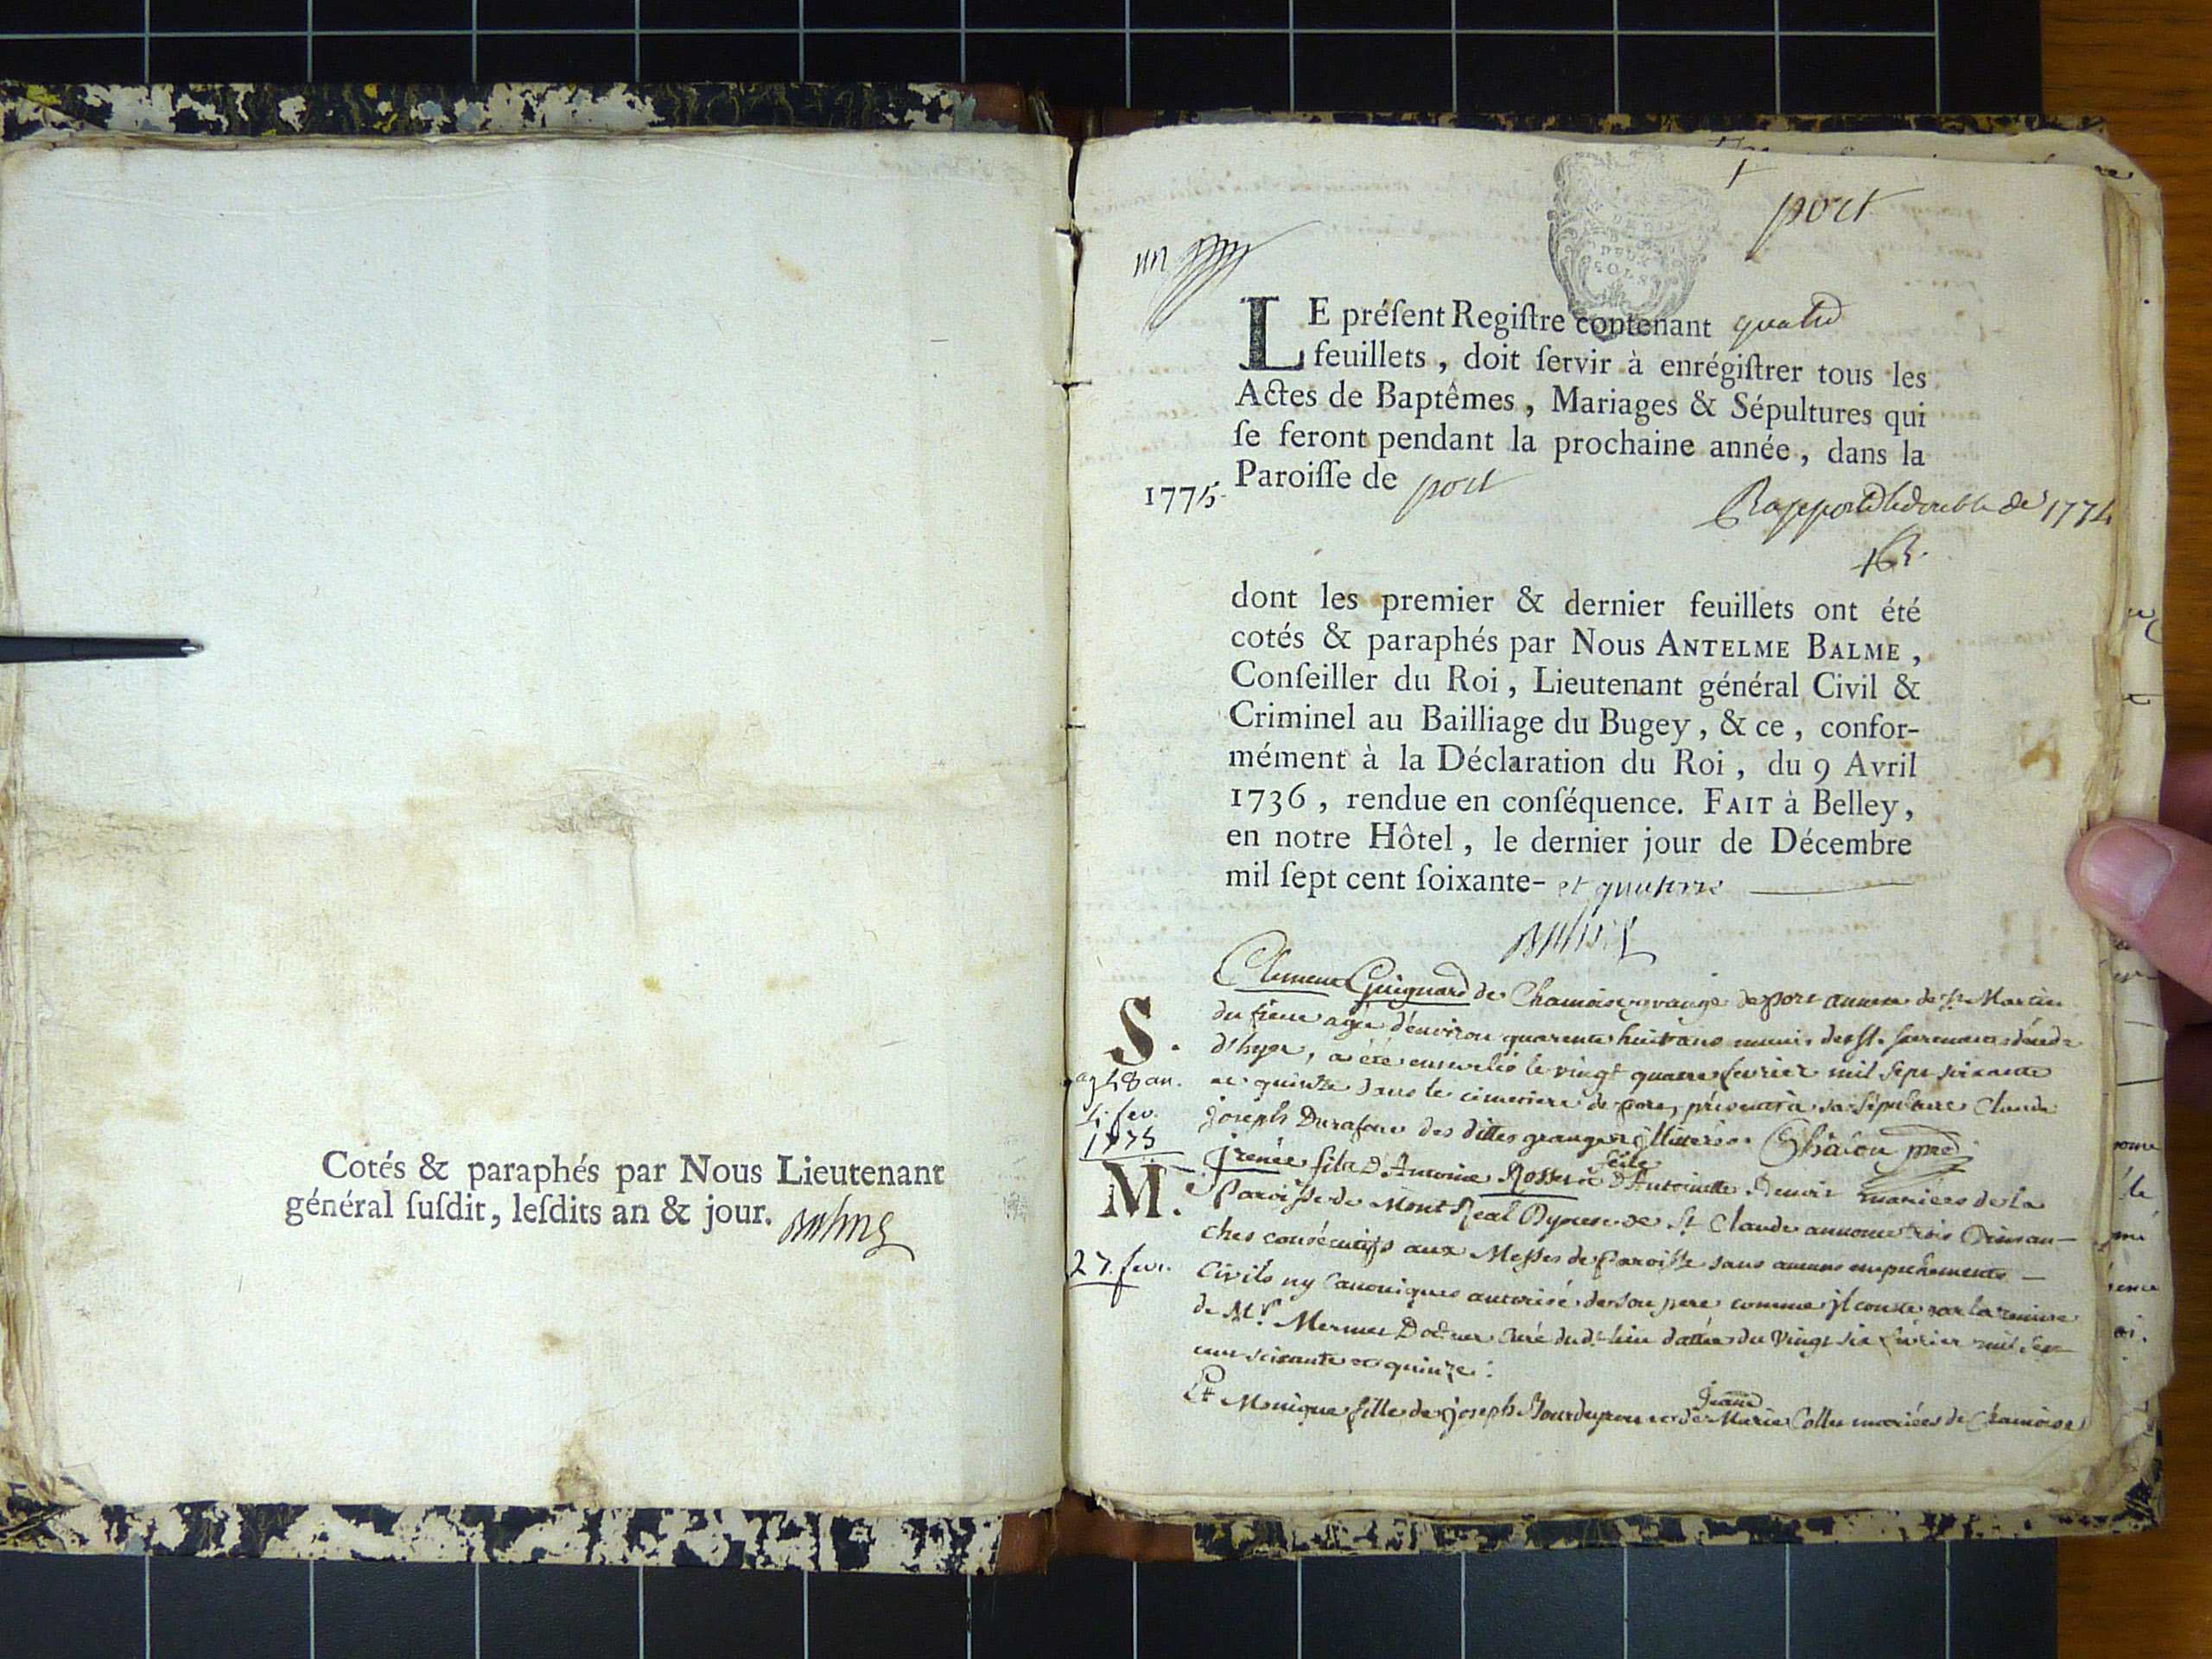 Cotés & paraphés par Nous Lieutenant
général ſuſdit, leſdits an & jour. Balme
port
un
DEUX
SOLS
LE préſent Regiſtre contenant quatre
feuillets, doit ſervir à enrégiſtrer tous les
Actes de Baptêmes, Mariages & Sépultures qui
ſe feront pendant la prochaine année, dans la
1775. Paroiſſe de port
Rapporté le double de 1774
dont les premier & dernier feuillets ont été
cotés & paraphés par Nous ANTELME BALME,
Conſeiller du Roi, Lieutenant général Civil &
Criminel au Bailliage du Bugey, & ce, confor-
mément à la Déclaration du Roi, du 9 Avril
1736, rendue en conſéquence. FAIT à Belley,
en notre Hôtel, le dernier jour de Décembre
mil ſept cent ſoixante- et quatorze
Balme
S.
Clement Guignard de Chamoise grange de port annexe de St Martin
du frene agé d'environ quarente huit ans munis des St. Sacrements décédé
d'hyer, a été ensevelis le vingt quatre fevrier mil sept soixante
ag 48 an.
et quinze dans le cimetiere de port, présent a sa sépulture Claude
fev.
1775
joseph Durafour des dittes granges jllitterés.
M.
jrenée fils D'Antoine Rosset et D'Antoinette Benoit mariés de la
Paroisse de Mont Real Dyocese de St Claude annoncé trois Diman-
ches consécutifs aux Messes de Paroisse sans aucuns empechements
27. fevr.
Civils ny Canoniques autorisé de son pere comme jl conste par la remise
de Mr. Mermet Docteur Curé dudt lieu dattée du vingt six fevrier mil sept
cent soixante et quinze:
Jeanne
Et Monique fille de joseph Bourdeyron et de Marie Collet mariées de Chamoise